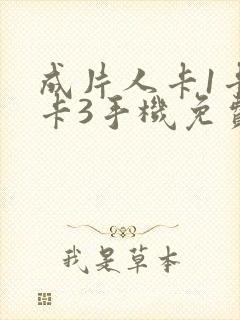 成片人卡1卡
卡3手機免費
我是草本